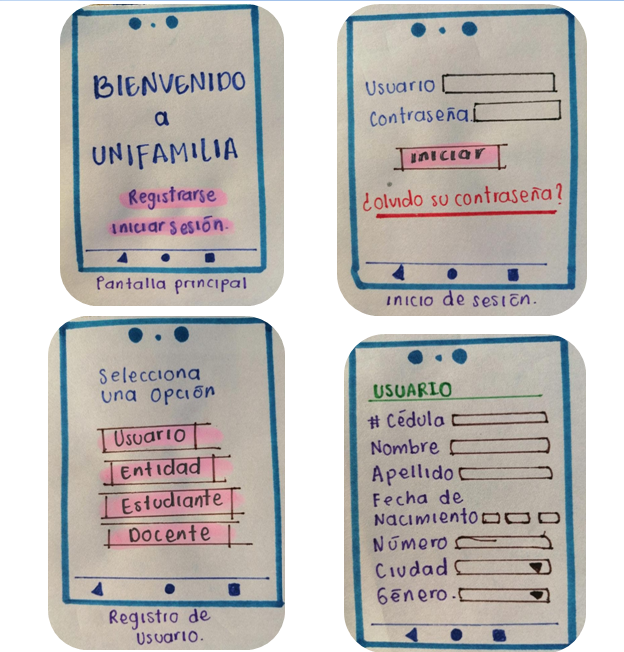 BIENVENIDO
a
UNIFAMILIA
Registrarse
iniciar sesión.
Pantalla principal
Usuario
Contraseña
iniciar
¿olvido su contraseña?
inicio de sesión.
Selecciona
una opción
Usuario
Entidad
Estudiante
Docente
Registro de
Usuario.
USUARIO
# Cédula
Nombre
Apellido
Fecha de
Nacimiento
Número
Ciudad
Género.